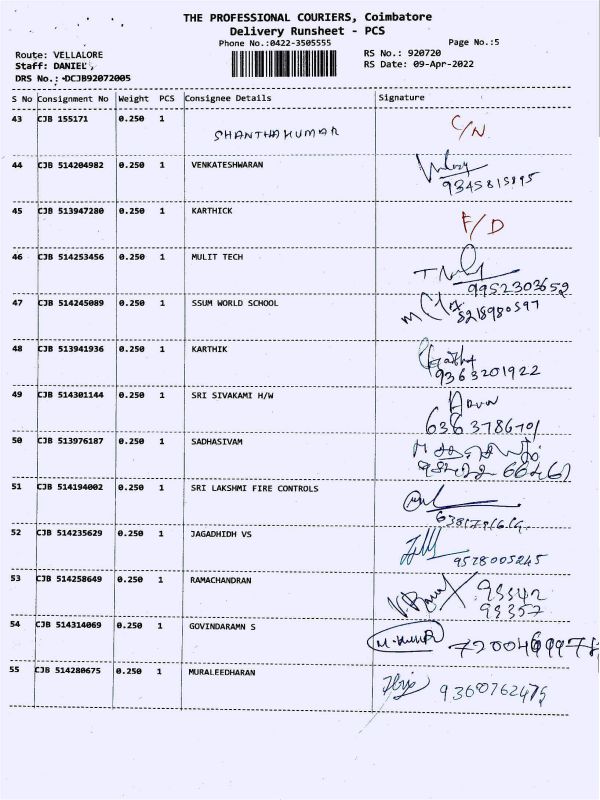 THE PROFESSIONAL COURIERS, Coimbatore
Delivery Runsheet - PCS
Phone No.:0422-3505555
Page No.:5
Route: VELLALORE
RS No.: 920720
Staff: DANIEL ,
RS Date: 09-Apr-2022
DRS No.: DCJB92072005
S No Consignment No Weight PCS Consignee Details Signature
43 CJB 155171 0.250 1 SHANTHAKUMAR C/N
44 CJB 514204982 0.250 1 VENKATESHWARAN
9345815895
45 CJB 513947280 0.250 1 KARTHICK F/D
46 CJB 514253456 0.250 1 MULIT TECH
9952303652
47 CJB 514245089 0.250 1 SSUM WORLD SCHOOL
8218980597
48 CJB 513941936 0.250 1 KARTHIK
9363201922
49 CJB 514301144 0.250 1 SRI SIVAKAMI H/W
6363786701
50 CJB 513976187 0.250 1 SADHASIVAM
51 CJB 514194002 0.250 1 SRI LAKSHMI FIRE CONTROLS
52 CJB 514235629 0.250 1 JAGADHIDH VS
9578005245
53 CJB 514258649 0.250 1 RAMACHANDRAN
93342
93357
54 CJB 514314069 0.250 1 GOVINDARAMN S
M. Kumar
55 CJB 514280675 0.250 1 MURALEEDHARAN
9360762475